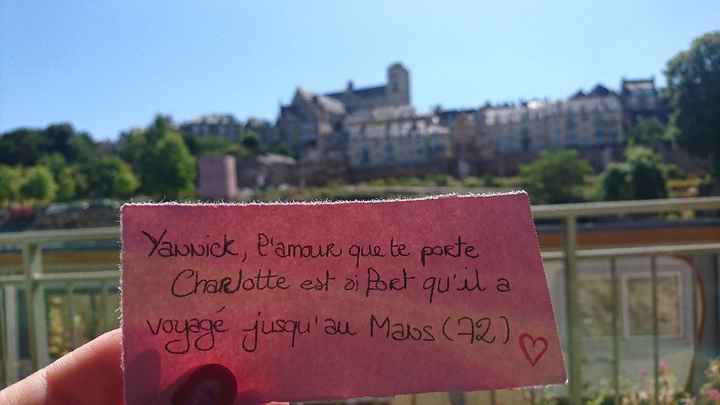 Yannick, l'amour que te porte
Charlotte est si fort qu'il a
voyagé jusqu'au Mans (72)